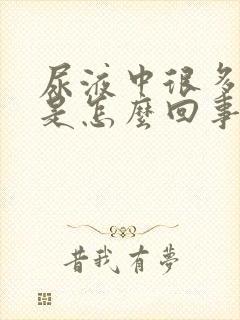 尿液中很多
是怎麼回事
昔我有夢